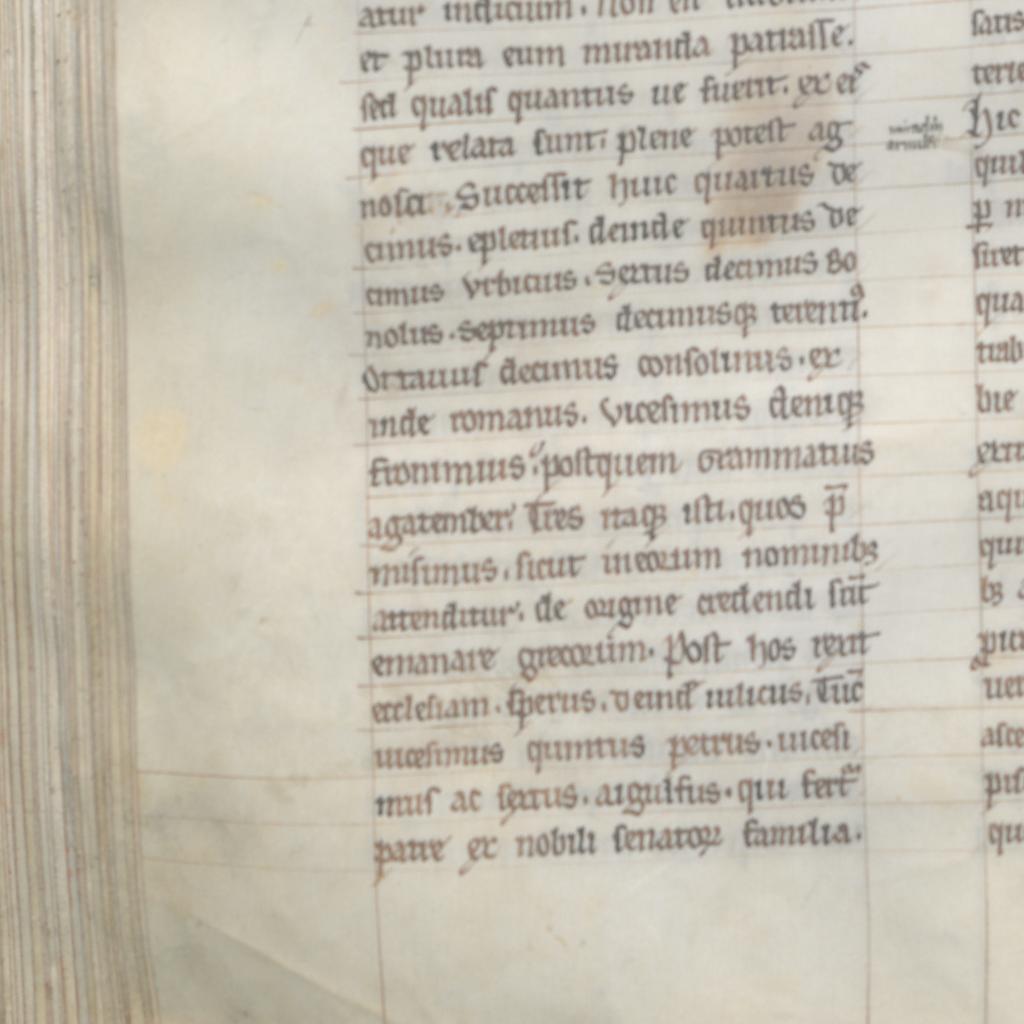 atur indicium. Non est
et plura eum miranda patrasse.
sed qualis quantus ue fuerit. ex eis
que relata sunt, plene potest ag
nosci. Successit huic quartus de
cimus. epletius. deinde quintus de
cimus Vrbicius. Sextus decimus Bo
nolus. Septimus decimusq; terenti9.
Octauus decimus consolinus. ex
inde romanus. Vicesimus deniq;
fronimius. postquem Grammatius
agatember. Tres itaq; isti, quos p̄
misimus, sicut ineorum nominib;
attenditur, de origine credendi sūt
emanare grecorum. Post hos rexit
ecclesiam. sperus, deind iulicus, Tūc
uicesimus quintus petrus. uicesi
mus ac sextus. aigulfus. qui fert
patre ex nobili senatoꝝ familia.
satis
terte
hic
quil
ꝑ m
siret
qua
trab
bie
aqu
qui
b;
uen
asce
pis
qu